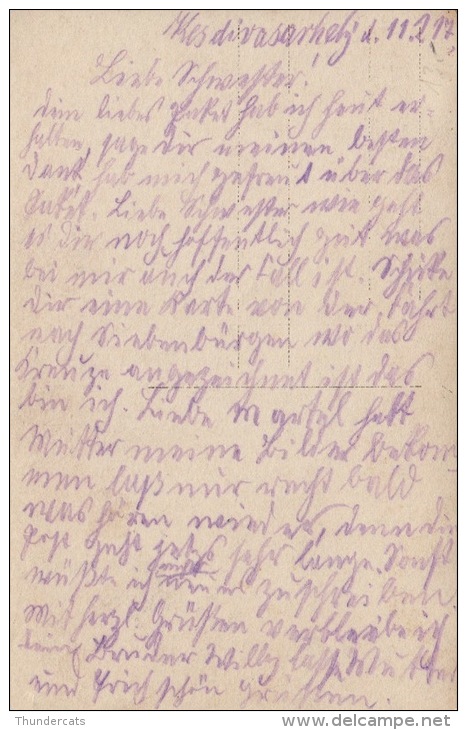 Kesdivasarhely d. 11.2.17.
Liebe Schwester!
dein liebes Paket hab ich heut er-
halten, sage dir meinen besten
Dank, hab mich gefreut über das
Paket. Liebe Schwester wie geht
es dir noch hoffentlich gut was
bei mir auch der Fall ist. Schicke
dir eine Karte von der Fahrt
nach Siebenbürgen wo das
Kreuze angezeichnet ist das
bin ich. Liebe hatt
Mutter meine Bilder bekom-
men laß mir recht bald
was hören wieder, denn die
Post geht jetzt sehr lange. Sonst
wüßte ich nicht neues zuschreiben.
Mit herzl. Grüßen verbleibe ich
dein Bruder Willy laß Mutter
und Erich schön grüßen.
Thundercats
www.delcampe.net